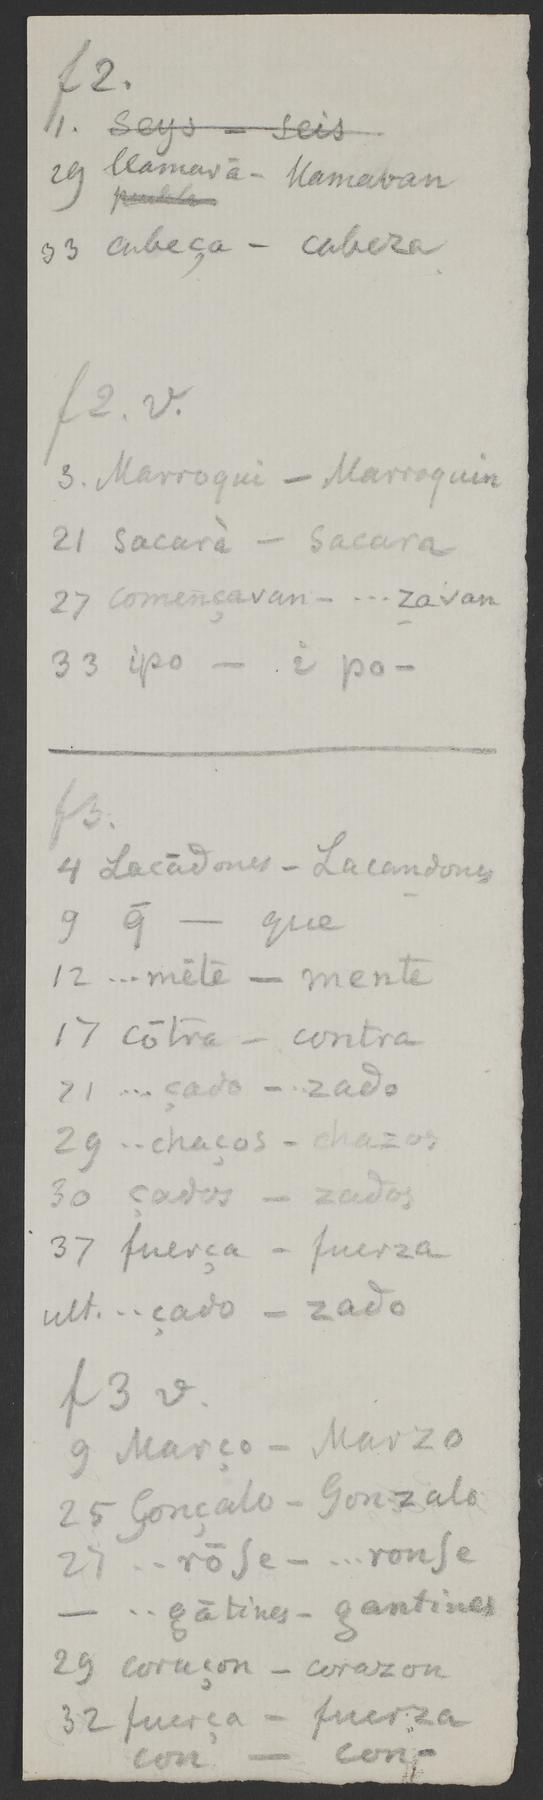 f 2.
1. Seys - seis
29 llamavā - llamavan
33 cabeça - cabeza
f 2. v.
3. Marroqui - Marroquin
21 sacarà - sacara
27 començavan - ...zavan
33 ipo - i po-
f 3.
4 Lacādones - Lacandones
9 q̄ - que
12 ...mētē - mente
17 cōtra - contra
21 ...çado - ..zado
29 ..chaços - chazos
30 çados - zados
37 fuerça - fuerza
ult. ..çado - zado
f 3 v.
9 Março - Marzo
25 Gonçalo - Gonzalo
27 ..rōse - ...ronse
- ..gātines - gantines
29 coraçon - corazon
32 fuerça - fuerza
con - con-